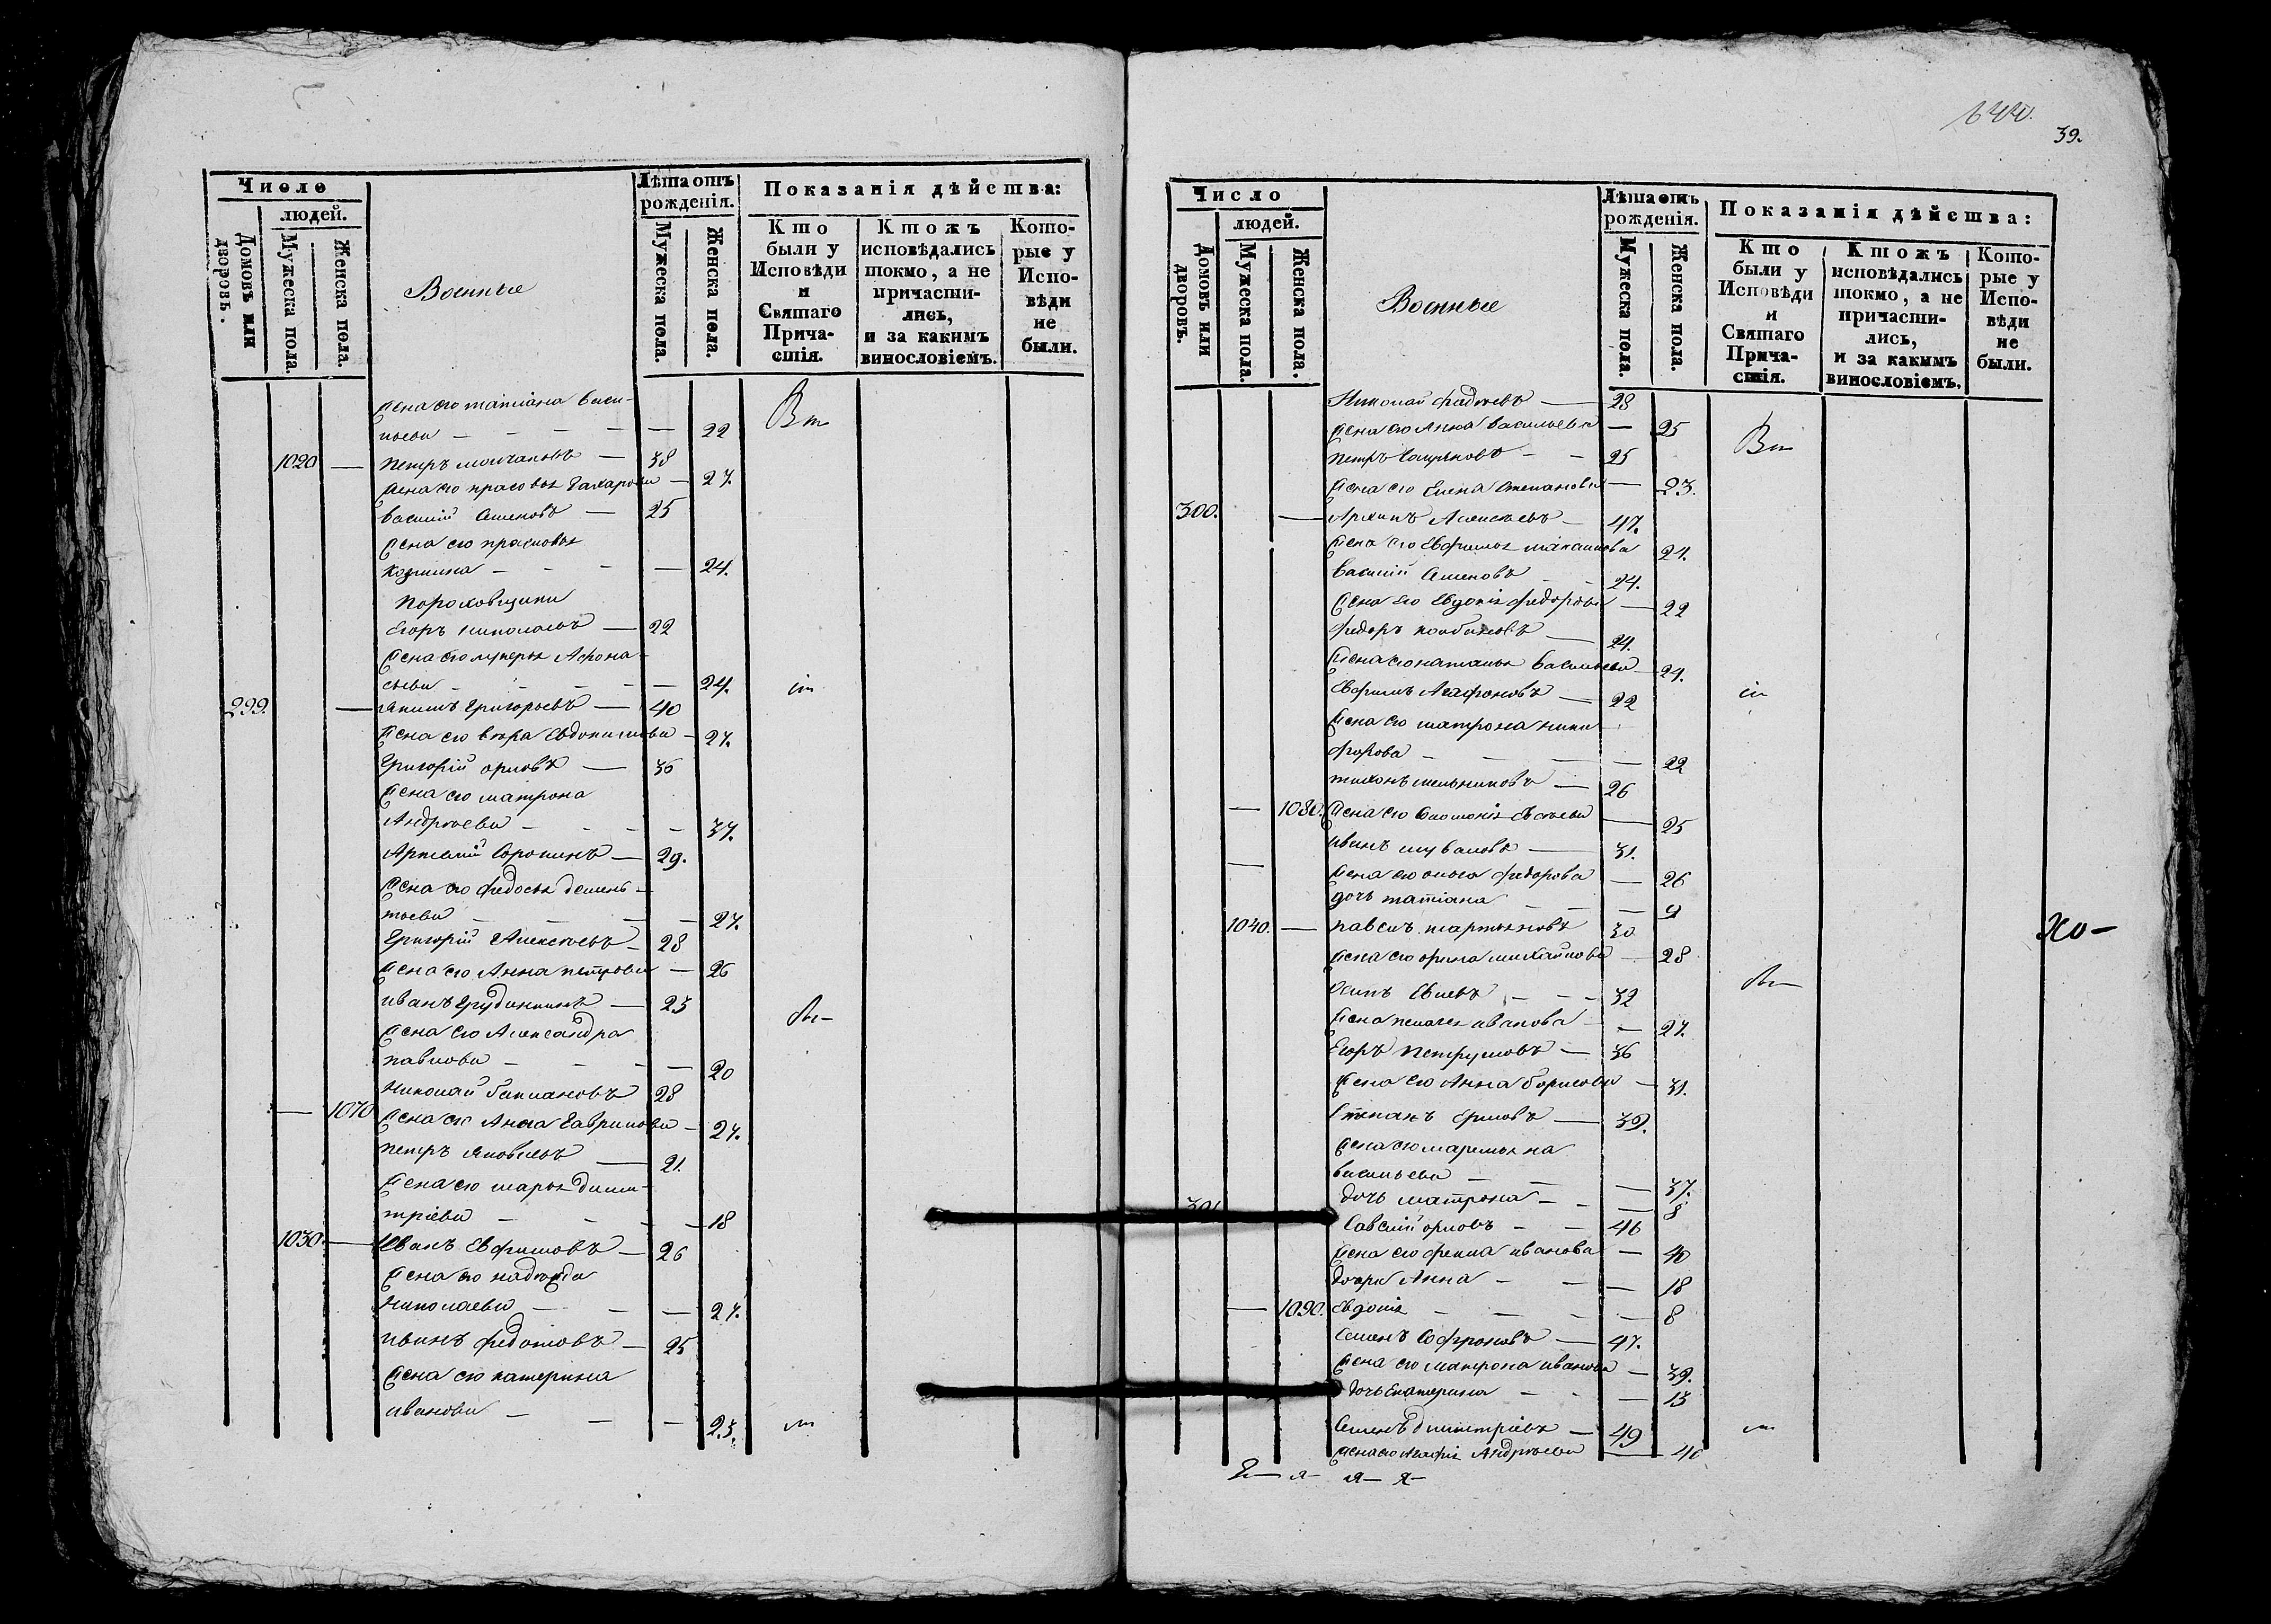 644.
39.
Число
людей.
Домовъ или дворовъ.
Мужеска пола.
Женска пола.
Военные
Лѣта отъ рожденія.
Мужеска пола.
Женска пола.
Показанія дѣйства:
Кто были у Исповѣди и Святаго Прича-стія.
Ктожъ исповѣдались токмо, а не причасти-лись, и за какимъ винословіемъ.
Кото-рые у Испо-вѣди не были.
жена его татіана васи-
льева — 22
1020 — петръ молчановъ — 38
жена его прасовья Захарова — 27.
василій Семеновъ — 25
жена его прасковья
козмина — 24.
пороховщики
Егоръ николаевъ — 22
жена его лукерья Афона-
сьева — 24.
299. — акимъ Григорьевъ — 40
жена его вѣра Евдокимова — 27.
Григорій орловъ — 36
жена его матрона
Андрѣева — 37.
Артемій Сорокинъ — 29.
жена его федосья демень-
тьева — 27.
Григорій Алексѣевъ — 28
жена его Анна петрова — 26
иванъ Грудинкинъ — 23
жена его Александра
павлова — 20
Николай 28
— 1070 жена его Анна Гаврилова — 27.
петръ яковлевъ — 21.
жена его марья дими-
тріева — 18
1030. — Иванъ Евфимовъ — 26
жена его надежда
Николаева — 27.
иванъ федотовъ — 25
жена его катерина
иванова — 23.
Число
людей.
Домовъ или дворовъ.
Мужеска пола.
Женска пола.
Военные
Лѣта отъ рожденія.
Мужеска пола.
Женска пола.
Показанія дѣйства:
Кто были у Исповѣди и Святаго Прича-стія.
Ктожъ исповѣдались токмо, а не причасти-лись, и за какимъ винословіемъ.
Кото-рые у Испо-вѣди не были.
Николай фадѣевъ — 28
жена его Анна васильева — 25
петръ — 25
жена его Елена Степанова — 23.
300. — Архипъ Алексѣевъ — 47.
жена его Евфимья 24.
василій Семеновъ — 24.
жена его Евдокія федорова — 22
федоръ — 24.
жена его наталья васильева 24.
Евфимъ Агафоновъ — 22
жена его матрона ники-
форова — 22
тихонъ мельниковъ — 26
— 1080. жена его Соломонія — 25
иванъ шуваловъ — 31.
жена его ольга федорова — 26
дочь татіана — 9
1040. — павелъ мартыновъ 30
жена его орина михайлова — 28
Осипъ — 32
жена пелагея иванова — 27.
Егоръ петрушовъ — 36
жена его Анна борисова — 31.
Степанъ Ермовъ — 39.
жена его маремьяна
васильева — 37.
дочь матрона — 8
301 Савелій орловъ — 46
жена его фекла иванова — 40
дочери Анна — 18
— 1090. Евдокія — 8
Семенъ Софроновъ — 47.
жена его матрона иванова — 39.
дочь Екатерина — 13
Семенъ димитріевъ — 49
жена его Агафія Андрѣева — 40